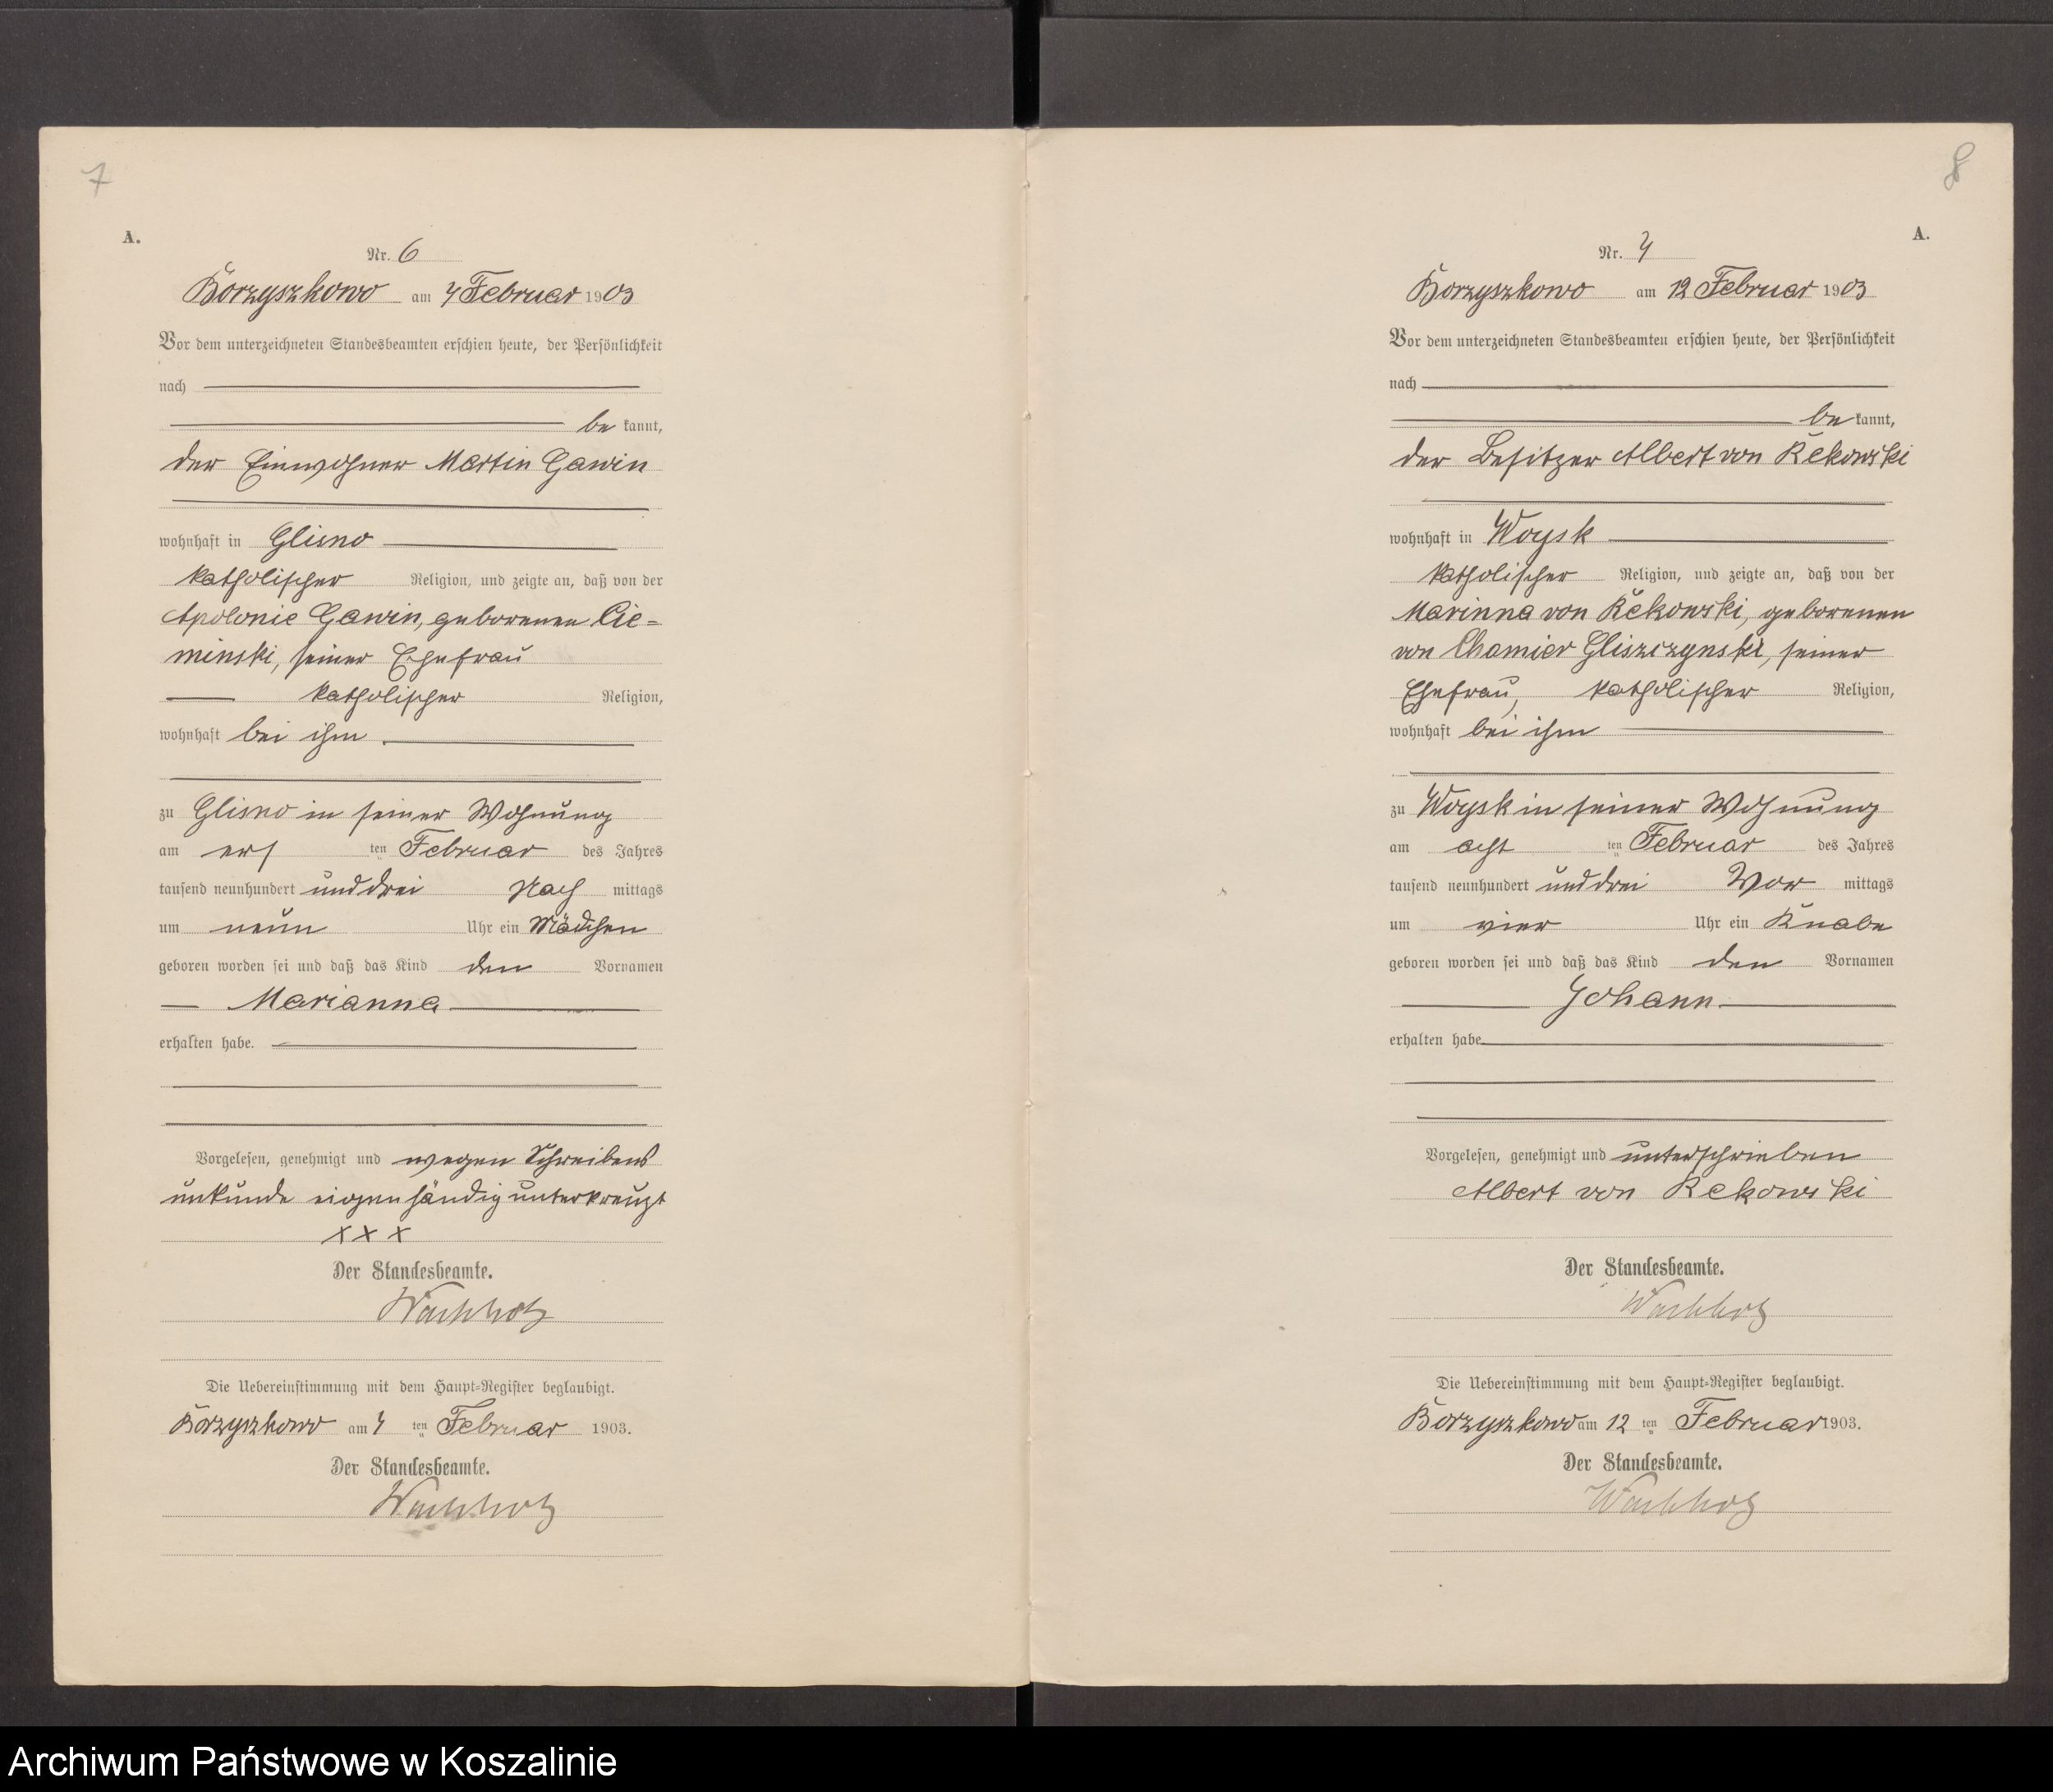 7
A.
Nr. 6
Borzyszkowo am 7 Februar 1903
Vor dem unterzeichneten Standesbeamten erschien heute, der Persönlichkeit
nach
be kannt,
der Einwohner Martin Gawin
wohnhaft in Glisno
katholischer Religion, und zeigte an, daß von der
Apolonie Gawin, geborenen Cie=
minski, seiner Ehefrau
katholischer Religion,
wohnhaft bei ihm
zu Glisno in seiner Wohnung
am ers ten Februar des Jahres
tausend neunhundert und drei Nach mittags
um neun Uhr ein Mädchen
geboren worden sei und daß das Kind den Vornamen
Marianna
erhalten habe.
Vorgelesen, genehmigt und wegen Schreibens
unkunde eigenhändig unterkreuzt
x x x
Der Standesbeamte.
Wachholz
Die Uebereinstimmung mit dem Haupt=Register beglaubigt.
Borzyszkowo am 7 ten Februar 1903.
Der Standesbeamte.
Wachholz
8
A.
Nr. 7
Borzyszkowo am 12 Februar 1903
Vor dem unterzeichneten Standesbeamten erschien heute, der Persönlichkeit
nach
be kannt,
der Besitzer Albert von Rekowski
wohnhaft in Woysk
katholischer Religion, und zeigte an, daß von der
Marinna von Rekowski, geborenen
von Chamier Gliszczynski, seiner
Ehefrau, katholischer Religion,
wohnhaft bei ihm
zu Woysk in seiner Wohnung
am acht ten Februar des Jahres
tausend neunhundert und drei Vor mittags
um vier Uhr ein Knabe
geboren worden sei und daß das Kind den Vornamen
Johann
erhalten habe
Vorgelesen, genehmigt und unterschrieben
Albert von Rekowski
Der Standesbeamte.
Wachholz
Die Uebereinstimmung mit dem Haupt=Register beglaubigt.
Borzyszkowo am 12 ten Februar 1903.
Der Standesbeamte.
Wachholz
Archiwum Państwowe w Koszalinie